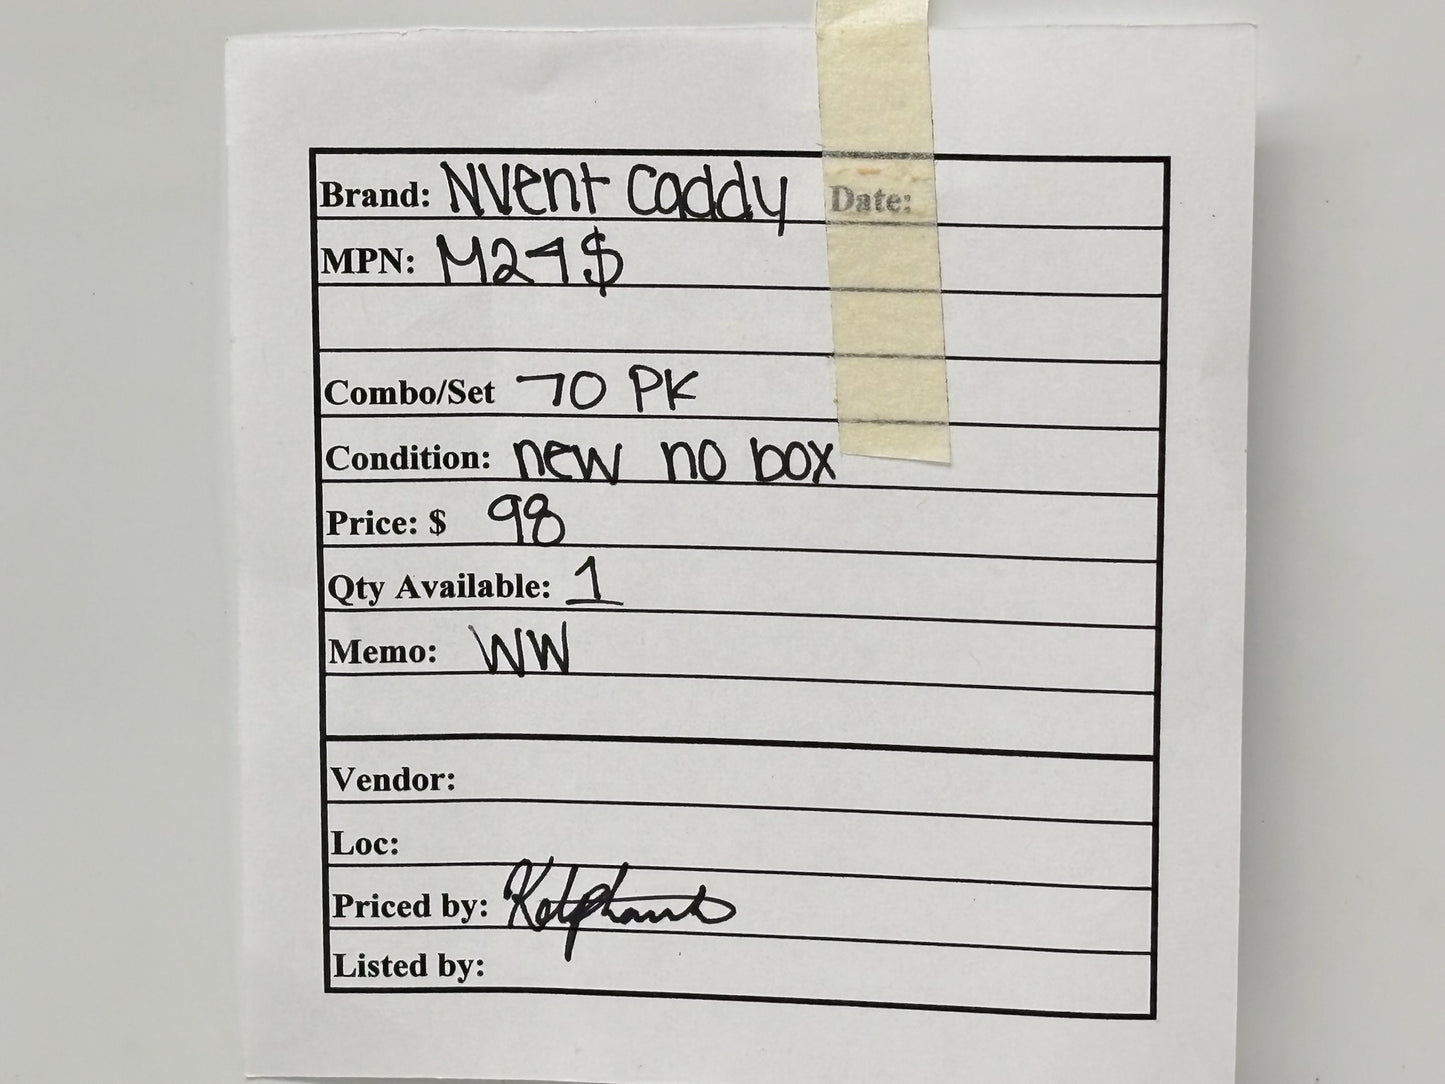 Brand: NVent Caddy Date:
MPN: M24$
Combo/Set 70 PK
Condition: new no box
Price: $ 98
Qty Available: 1
Memo: WW
Vendor:
Loc:
Priced by:
Listed by: